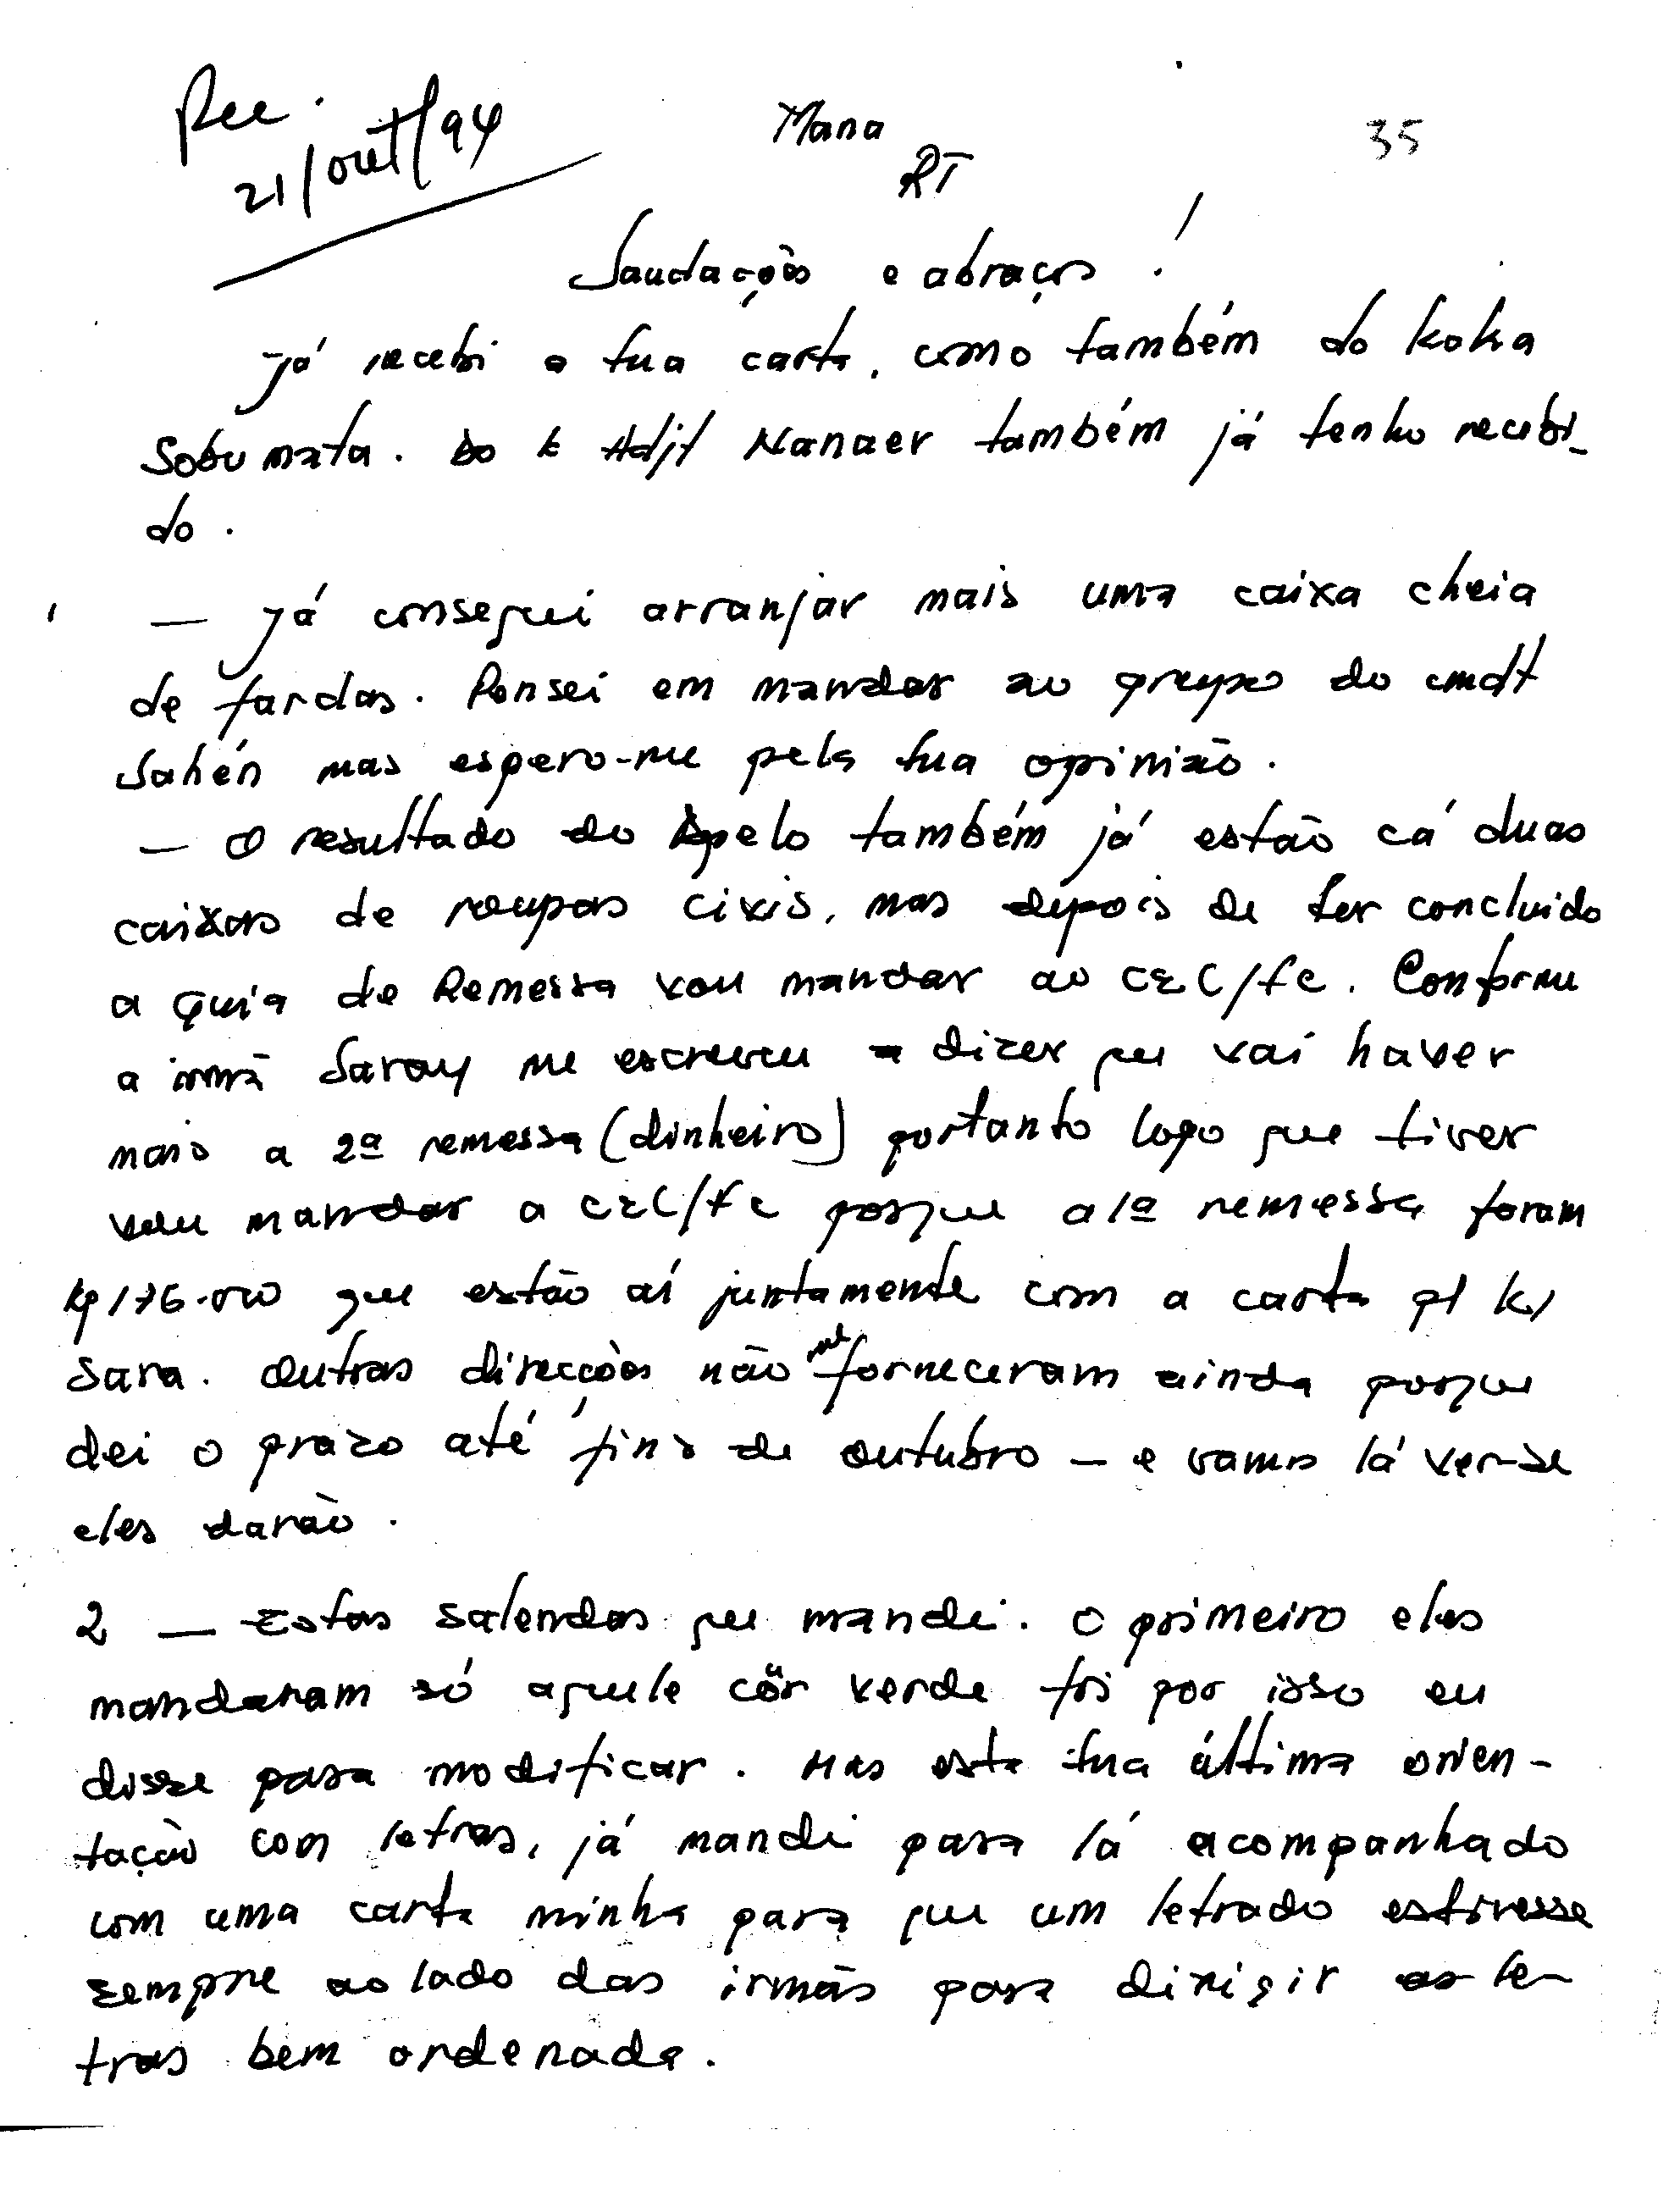 Rec.
21/out/94
Mana
RT
35
Saudações e abraços!
Já recebi a tua carta, como também do koka
Sobu mata. Do Adjt Nanaer também já tenho recebi-
do.
— Já consegui arranjar mais uma caixa cheia
de fardas. Pensei em mandar ao grupo do cmdt
Sahén mas espero-me pela tua opinião.
— O resultado do Apelo também já estão cá duas
caixas de roupas civis, mas depois de ter concluido
a guia de Remessa vou mandar ao CEC/FC. Conforme
a irmã Saray me escreveu a dizer que vai haver
mais a 2ª remessa (dinheiro) portanto logo que tiver
vou mandar a CEC/FC porque a 1ª remessa foram
que estão aí juntamente com a carta p/ K/
Sara. Outras direcções não me forneceram ainda porque
dei o prazo até fins de outubro — e vamos lá ver-se
eles darão.
2 — Estas salendas que mandei. O primeiro eles
mandaram só aquele côr verde foi por isso eu
disse para modificar. Mas esta tua última orien-
tação com letras, já mandei para lá acompanhado
com uma carta minha para que um letrado estivesse
sempre ao lado das irmãs para dirigir as le-
tras bem ordenada.